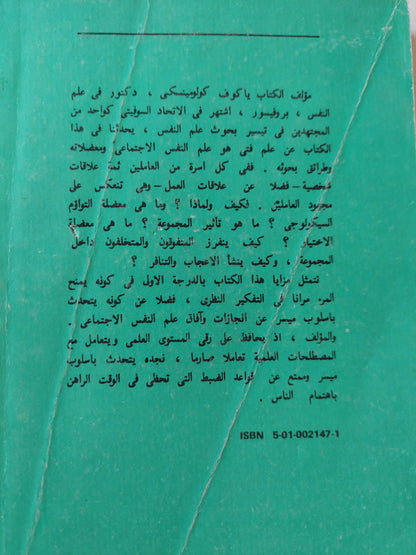 مؤلف الكتاب ياكوف كولومينسكى ، دكتور فى علم
النفس ، بروفيسور ، اشتهر فى الاتحاد السوفيتى كواحد من
المجتهدين فى تيسير بحوث علم النفس ، يحدثنا فى هذا
الكتاب عن علم فتى هو علم النفس الاجتماعى ومعضلاته
وطرائق بحوثه . ففى كل اسرة من العاملين ثمة علاقات
شخصية – فضلا عن علاقات العمل – وهى تنعكس على
مجهود العاملين . فكيف ولماذا ؟ وما هى معضلة التواؤم
السيكولوجى ؟ ما هو تأثير المجموعة ؟ ما هى معضلة
الاختيار ؟ كيف ينفرز المتفوقون والمتخلفون داخل
المجموعة ، وكيف ينشأ الاعجاب والتنافر ؟
تتمثل مزايا هذا الكتاب بالدرجة الاول فى كونه يمنح
المرء مرانا فى التفكير النظرى ، فضلا عن كونه يتحدث
باسلوب ميسر عن انجازات وآفاق علم النفس الاجتماعى .
والمؤلف ، اذ يحافظ على رقى المستوى العلمى ويتعامل مع
المصطلحات العلمية تعاملا صارما ، نجده يتحدث باسلوب
ميسر وممتع عن قواعد الضبط التى تحظى فى الوقت الراهن
باهتمام الناس .
ISBN 5-01-002147-1